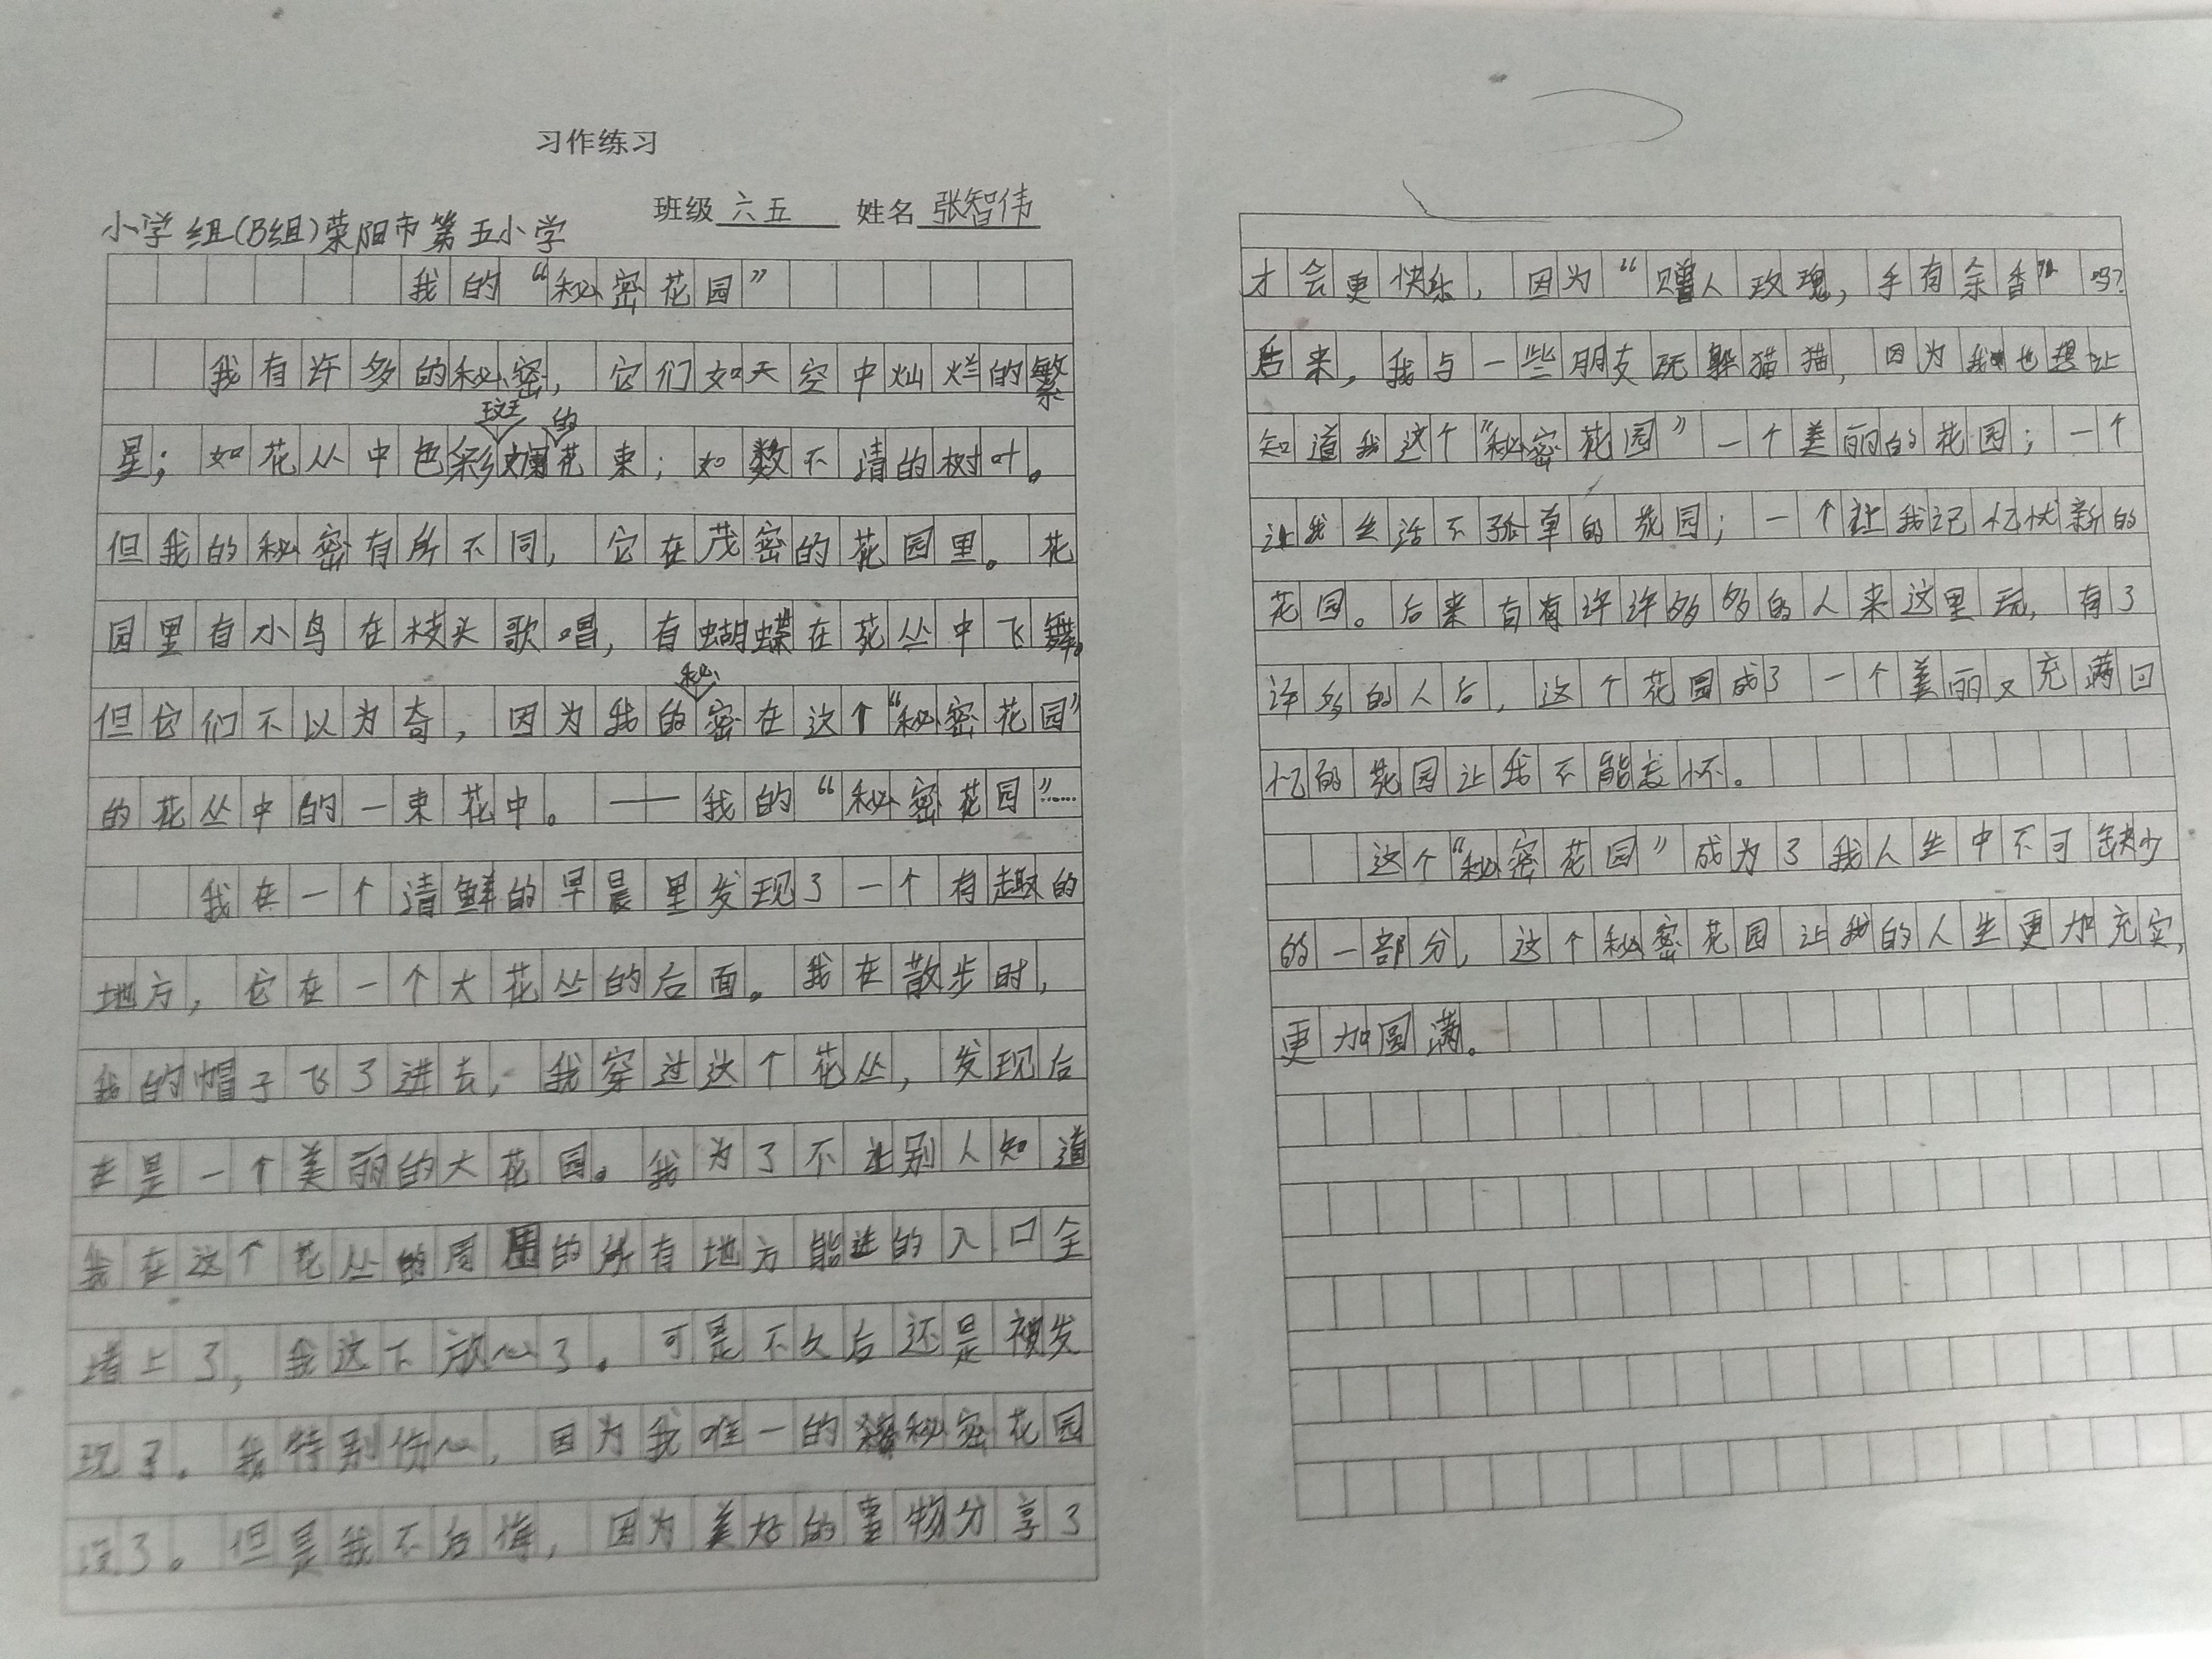 习作练习
班级 六五 姓名 张智伟
小学组(B组)荥阳市第五小学
我的“秘密花园”
我有许多的秘密，它们如天空中灿烂的繁
星；如花丛中色彩斑斓的花束；如数不清的树叶。
但我的秘密有所不同，它在茂密的花园里。花
园里有小鸟在枝头歌唱，有蝴蝶在花丛中飞舞。
但它们不以为奇，因为我的秘密在这个“秘密花园”
的花丛中的一束花中。——我的“秘密花园”……
我在一个清鲜的早晨里发现了一个有趣的
地方，它在一个大花丛的后面。我在散步时，
我的帽子飞了进去，我穿过这个花丛，发现后
在是一个美丽的大花园。我为了不让别人知道
我在这个花丛的周围的所有地方能进的入口全
堵上了，我这下放心了。可是不久后还是被发
现了。我特别伤心，因为我唯一的秘密花园
没了。但是我不后悔，因为美好的事物分享了
才会更快乐，因为“赠人玫瑰，手有余香”吗?
后来，我与一些朋友玩躲猫猫，因为我也想让
知道我这个“秘密花园”一个美丽的花园；一个
让我生活不孤单的花园；一个让我记忆犹新的
花园。后来有有许许多多的人来这里玩，有了
许多的人后，这个花园成了一个美丽又充满回
忆的花园让我不能忘怀。
这个“秘密花园”成为了我人生中不可缺少
的一部分，这个秘密花园让我的人生更加充实，
更加圆满。